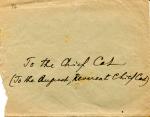 To the Chief Cat
(To the August, Reverent Chief Cat)